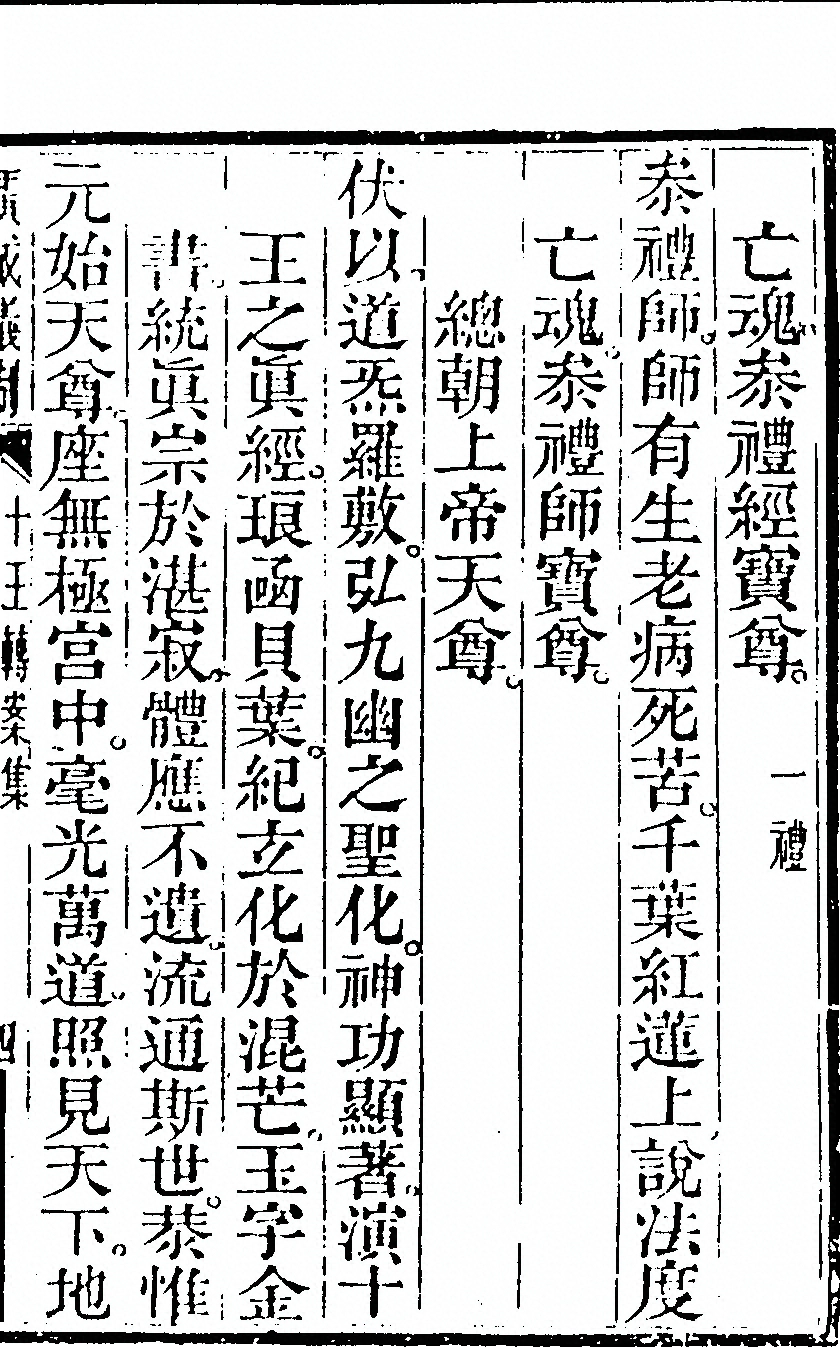 亡魂叅禮經寶尊。 一禮
叅禮師。師有生老病死苦。千葉紅蓮上說法度
亡魂。叅禮師寶尊。
總朝上帝天尊。
伏以。道炁羅敷。弘九幽之聖化。神功顯著。演十
王之眞經。琅函貝葉。紀立化於混芒。玉字金
書。統眞宗於湛寂。體應不遺。流通斯世。恭惟
元始天尊。座無極宮中。毫光萬道。照見天下。地
廣成儀制 十王轉案集 四